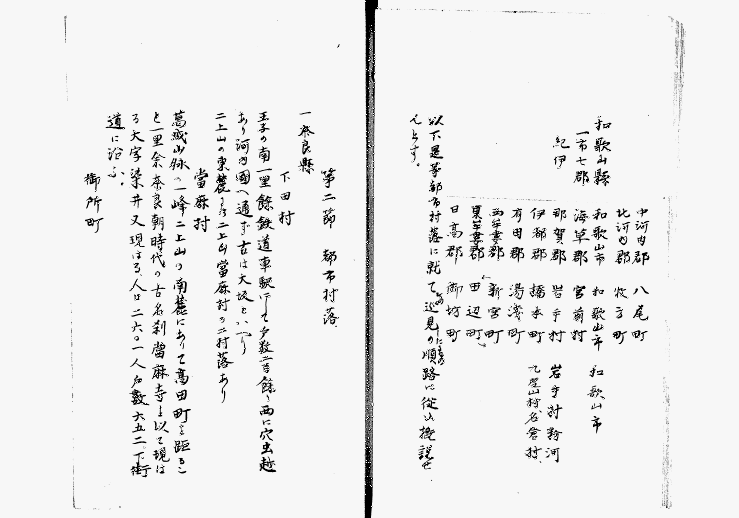 中河内郡 八尾町
北河内郡 枚方町
和歌山縣 和歌山市 和歌山市 和歌山市
一市七郡 海草郡 宮前村
紀伊 那賀郡 岩手村 岩手村粉河
伊都郡 橋本町 村名倉村、
有田郡 湯浅町
西牟婁郡 新宮町
東牟婁郡 田辺町
日高郡 御坊町
以下是等郡市村落に就て巡見の順路に従ひ概説せ
んとす。
第二節 郡市村落
一 奈良縣
下田村
王子の南一里餘鉄道車駅にして戸数二百餘、西に穴虫越
あり河内國へ通ず古は大坂といへり
二上山の東麓に二上山當麻村の二村落あり
當麻村
葛城山脉の一峰二上山の南麓にありて高田町を距るこ
と一里余奈良朝時代の古名刹當麻寺を以て現は
る大字染井又現はる、人口二六〇一人戸數六五二、下街
道に沿ふ。
御所町